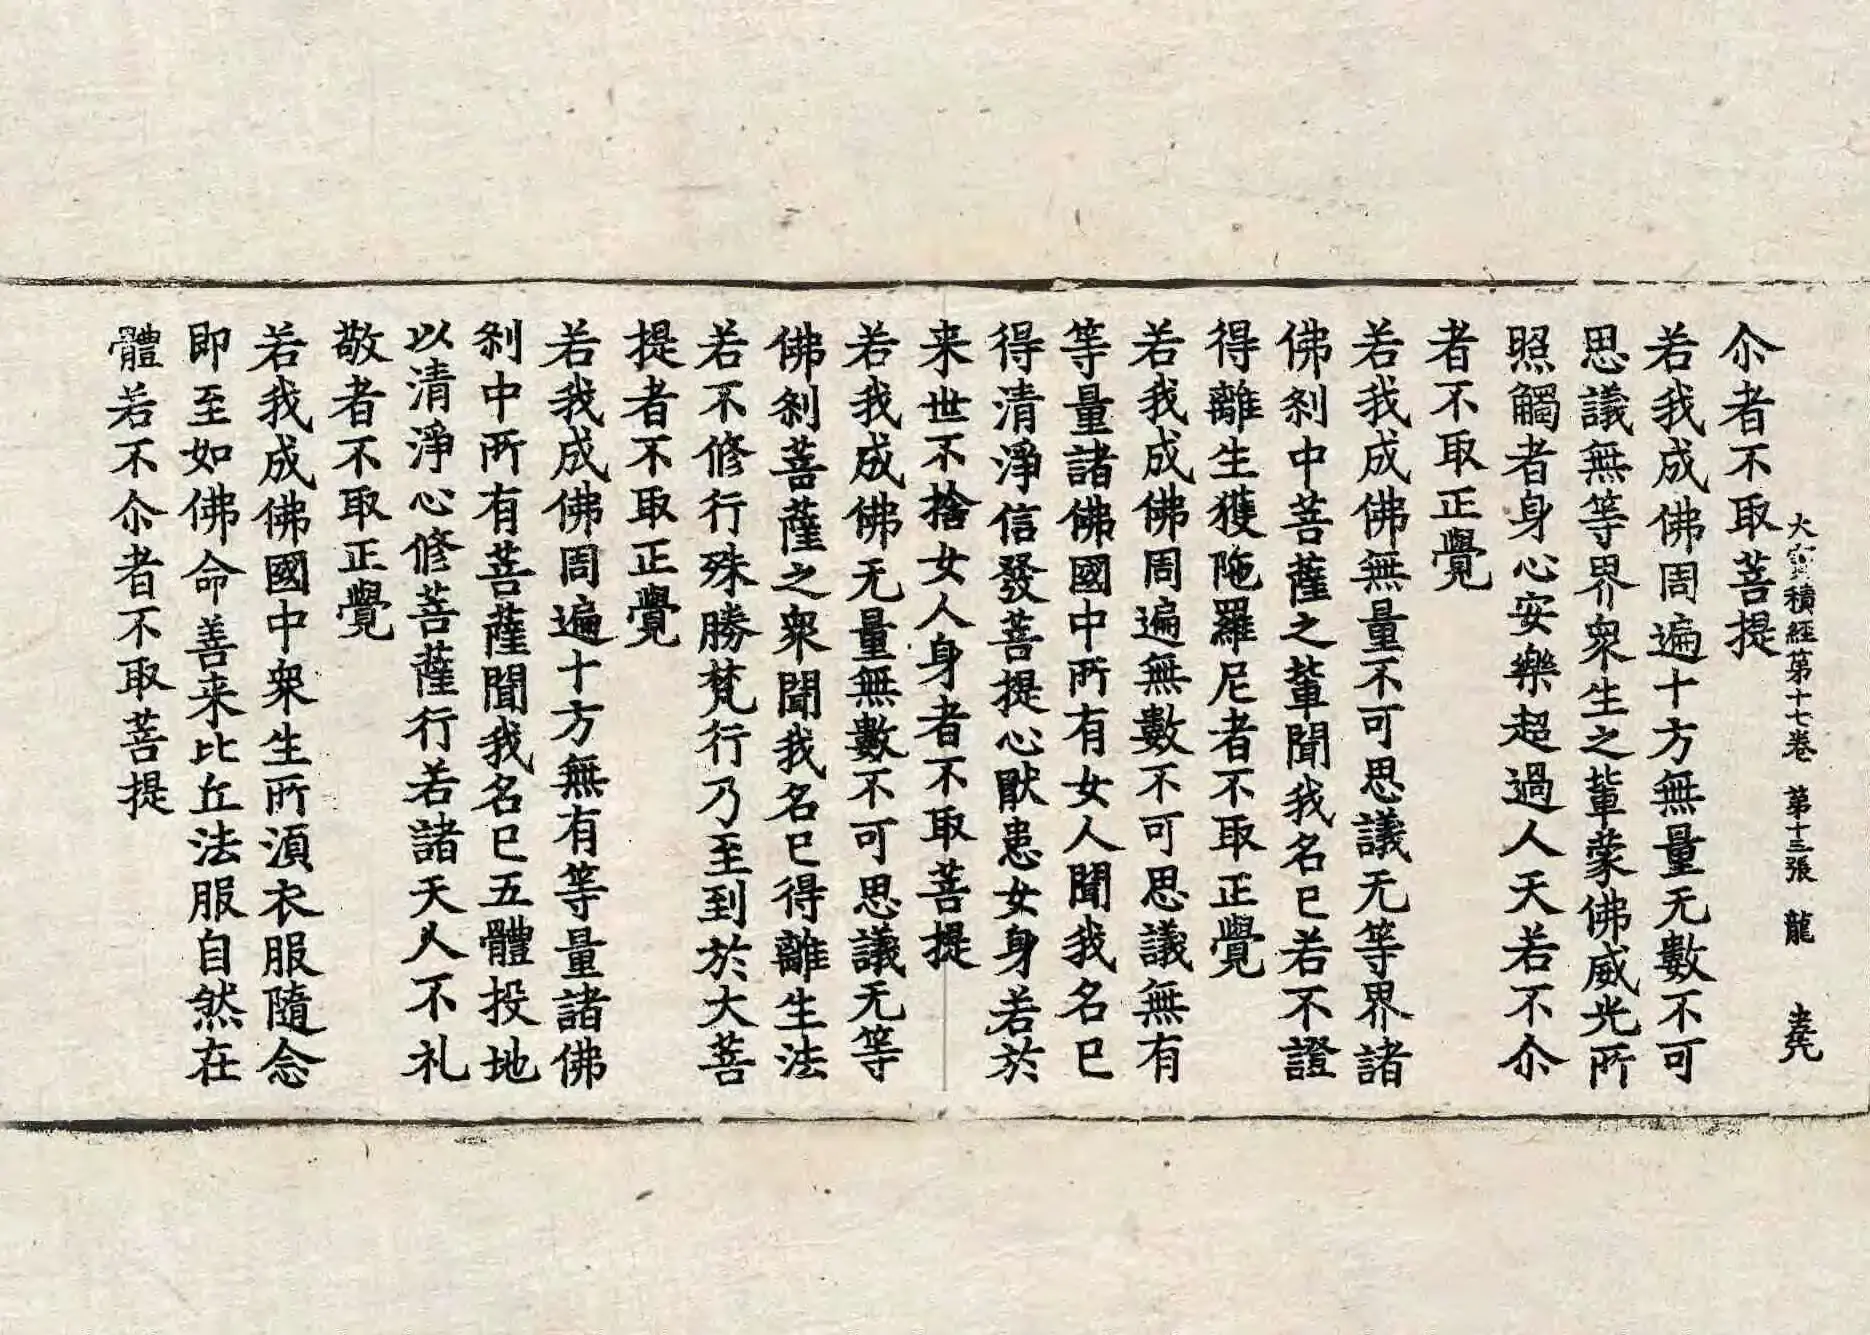 大寶積經第十七卷 第十三張 龍
尒者不取菩提
若我成佛周遍十方無量无數不可
思議無等界衆生之輩蒙佛威光所
照觸者身心安樂超過人天若不尒
者不取正覺
若我成佛無量不可思議无等界諸
佛刹中菩薩之輩聞我名已若不證
得離生獲陁羅尼者不取正覺
若我成佛周遍無數不可思議無有
等量諸佛國中所有女人聞我名已
得清淨信發菩提心猒患女身若於
来世不捨女人身者不取菩提
若我成佛无量無數不可思議无等
佛刹菩薩之衆聞我名已得離生法
若不修行殊勝梵行乃至到於大菩
提者不取正覺
若我成佛周遍十方無有等量諸佛
刹中所有菩薩聞我名已五體投地
以清淨心修菩薩行若諸天人不礼
敬者不取正覺
若我成佛國中衆生所湏衣服隨念
即至如佛命善来比丘法服自然在
體若不尒者不取菩提